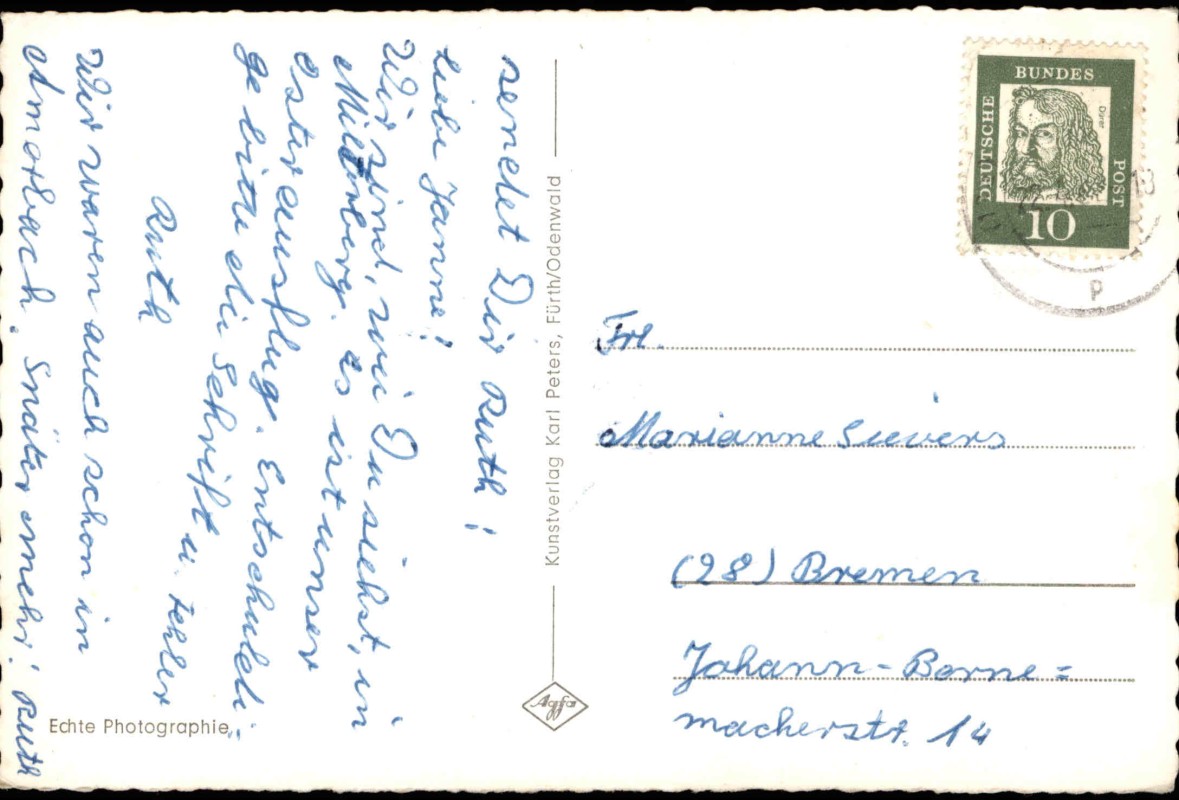 sendet Dir Ruth!
liebe Janne!
Wir sind, wie Du siehst, in
Miltenberg. es ist unser
Osterausflug. Entschuldi=
ge bitte die Schrift u. Fehler
Ruth
Wir waren auch schon in
Amorbach. Später mehr! Ruth
Echte Photographie
Kunstverlag Karl Peters, Fürth/Odenwald
Agfa
DEUTSCHE
BUNDES
POST
Dürer
10
18
P
Frl.
Marianne Sievers
(28) Bremen
Johann-Borne=
macherstr. 14